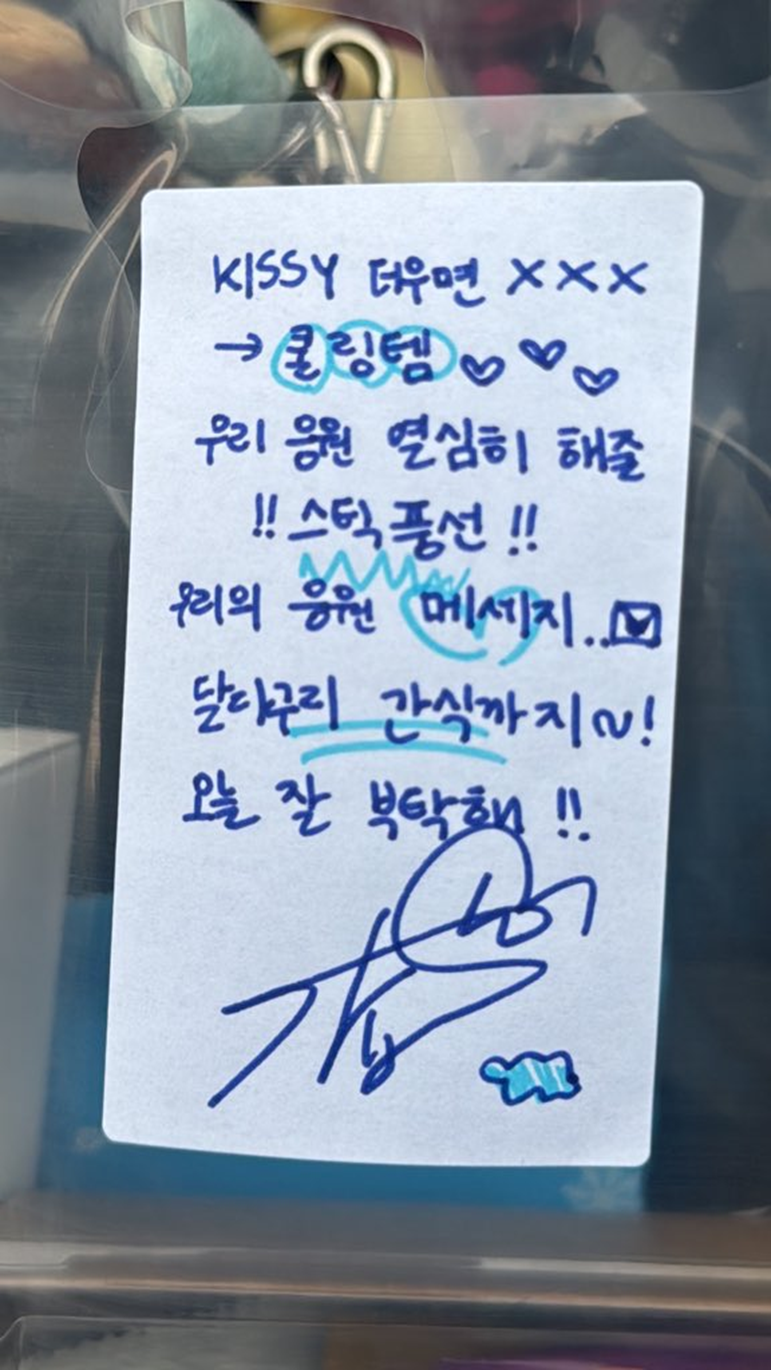 KISSY 더우면 XXX
→ 쿨링템 ♡ ♡ ♡
우리 응원 열심히 해줄
!! 스틱풍선 !!
우리의 응원 메세지..
달다구리 간식까지~!
오늘 잘 부탁해 !!